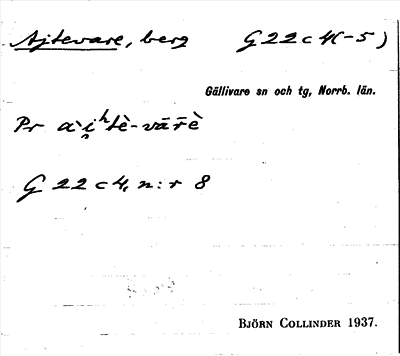 Ajtevare, berg G 22 c 4(-5)
Gällivare sn och tg, Norrb. län.
Pr a`i̯ʰtè-vār̄è
G 22 c 4, n:r 8
BJÖRN COLLINDER 1937.